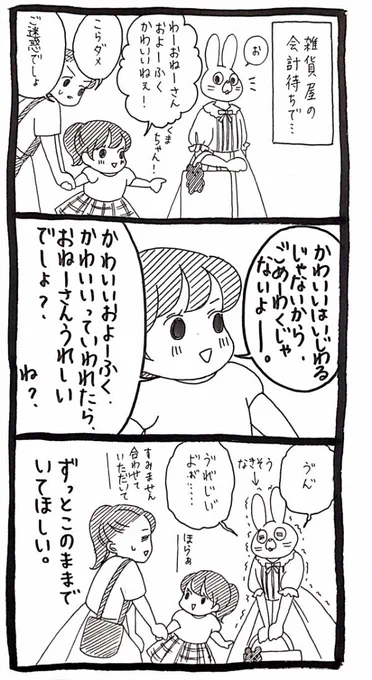 雑貨屋の
会計待ちで…
お
わーおねーさん
およーふく
かわいいねぇ!
くま
ちゃん!
こらダメ
ご迷惑でしょ
かわいいはいじわる
じゃないから、
ごめーわくじゃ
ないよーー。
かわいいおよーふく、
かわいいっていわれたら、
おねーさんうれしい
でしょ?
ね?
ゔん゙
なきそう
ゔれじい゙
よ゙ぉ゙……
すみません
合わせて
いただいて
ほらぁ
ずっとこのままで
いてほしい。